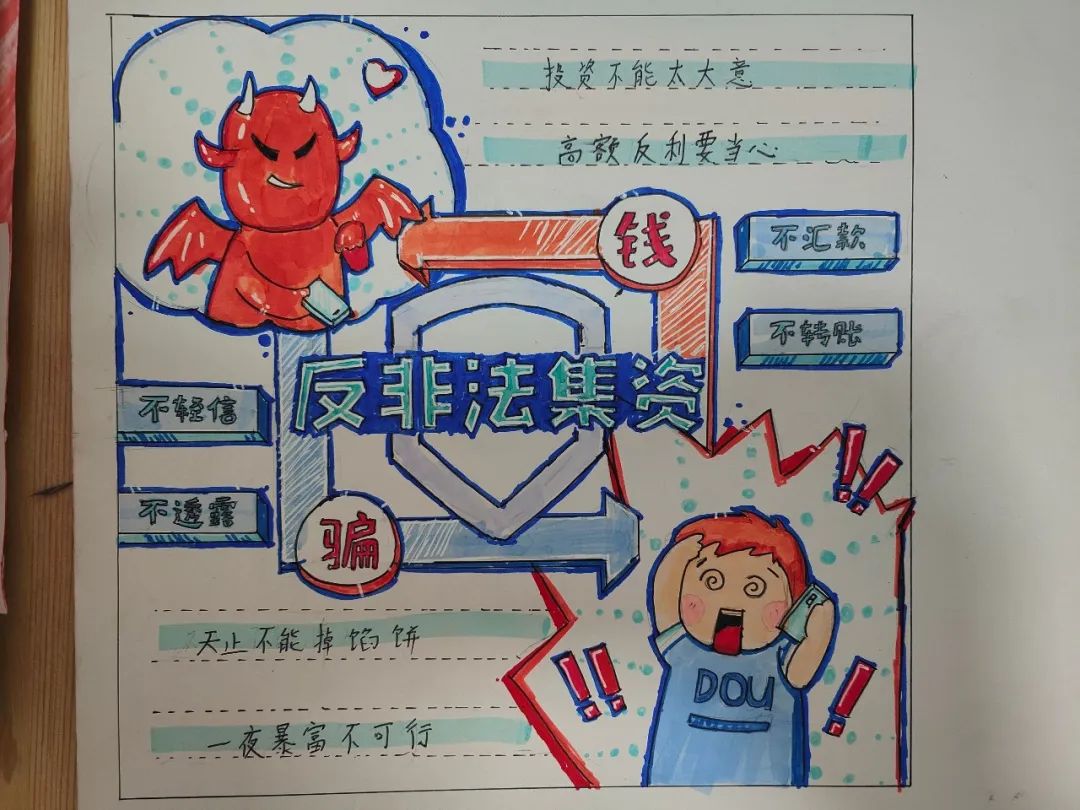 投资不能太大意
高额反利要当心
钱
不汇款
不转账
反非法集资
不轻信
不透露
骗
天止不能掉馅饼
一夜暴富不可行
DOU